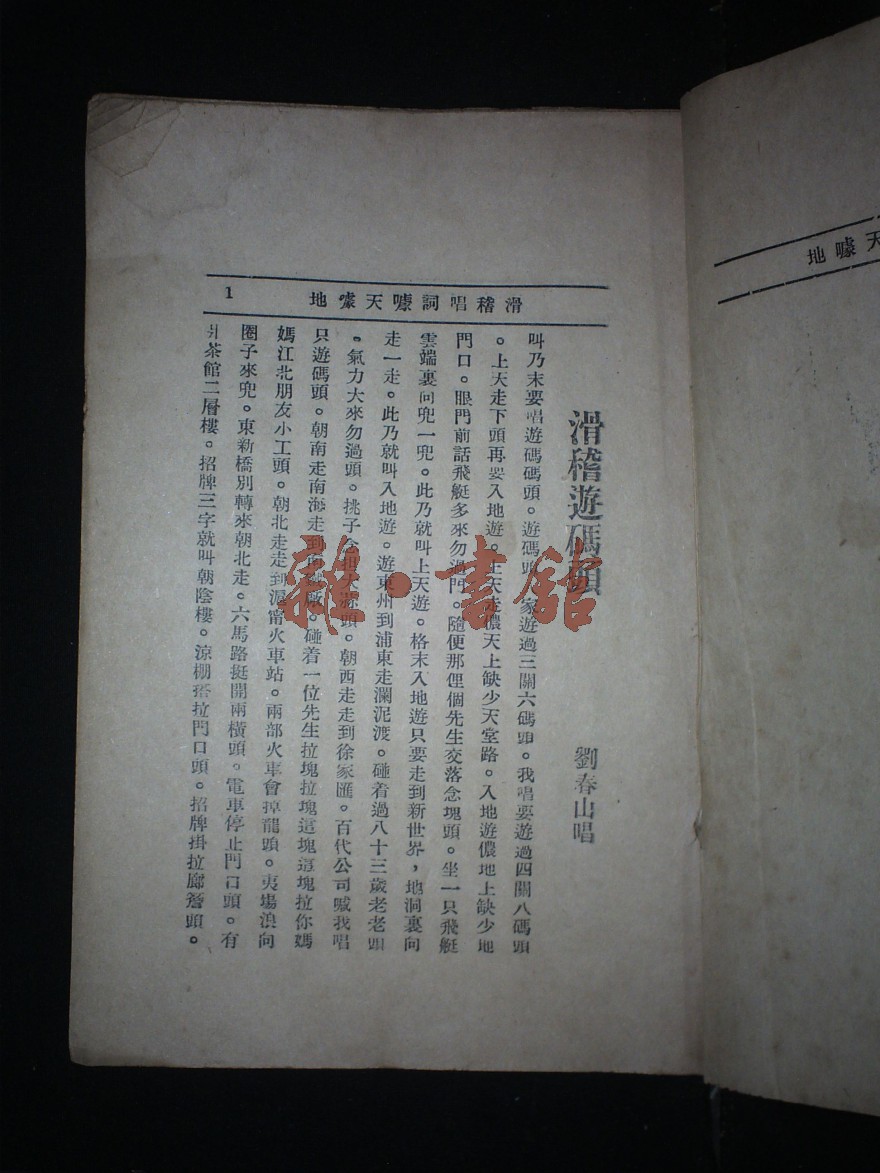 滑稽唱詞噱天噱地
1
滑稽遊碼頭
劉春山唱
叫乃末要唱遊碼碼頭。遊碼頭家遊過三關六碼頭。我唱要遊過四關八碼頭
。上天走下頭再要入地遊。上天走儂天上缺少天堂路。入地遊儂地上缺少地
門口。眼門前話飛艇多來勿過門。隨便那俚個先生交落念塊頭。坐一只飛艇
雲端裏向兜一兜。此乃就叫上天遊。格末入地遊只要走到新世界，地洞裏向
走一走。此乃就叫入地遊。遊東州到浦東走瀾泥渡。碰着過八十三歲老老頭
。氣力大來勿過頭。挑子念担大頭。朝西走走到徐家匯。百代公司喊我唱
只遊碼頭。朝南走南海走到廠。碰着一位先生拉塊拉塊這塊這塊拉你媽
媽江北朋友小工頭。朝北走走到滬甯火車站。兩部火車會掉龍頭。夷塲浪向
圈子來兜。東新橋別轉來朝北走。六馬路挺開兩橫頭。電車停止門口頭。有
爿茶館二層樓。招牌三字就叫朝陰樓。涼棚搭拉門口頭。招牌掛拉廊簷頭。
雜·書館
天噱地